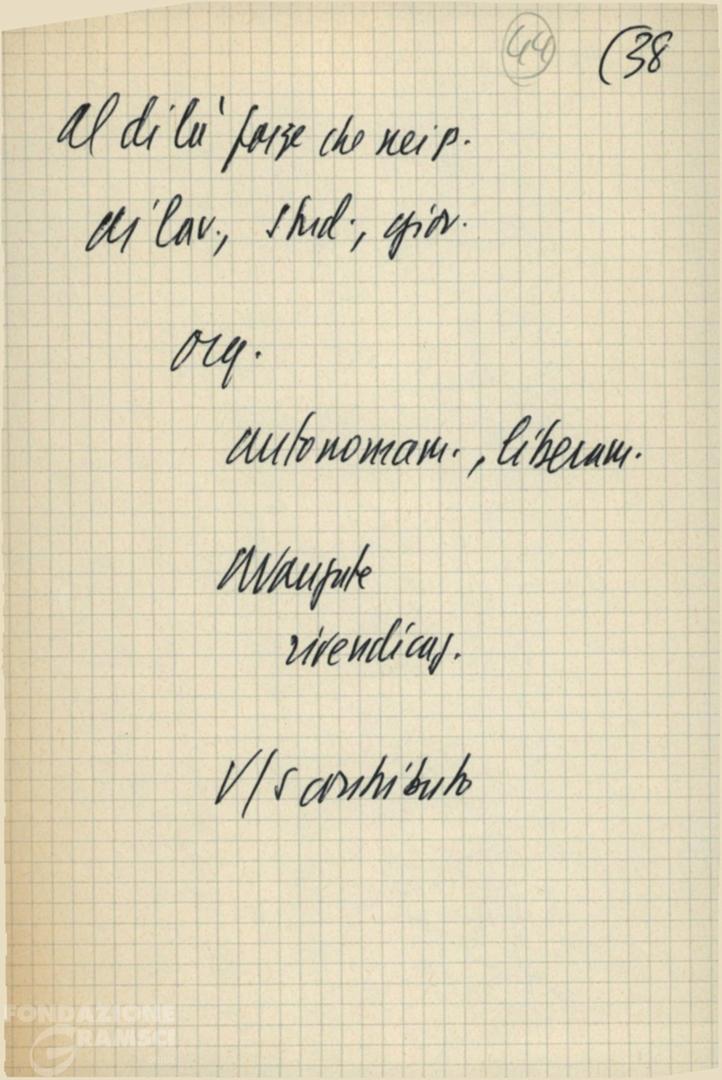 44 (38
al di là forze che nei p.
di lav., stud., giov.
org.
autonomam., liberam.
avanzate
rivendicaz.
V/s contributo
FONDAZIONE
GRAMSCI